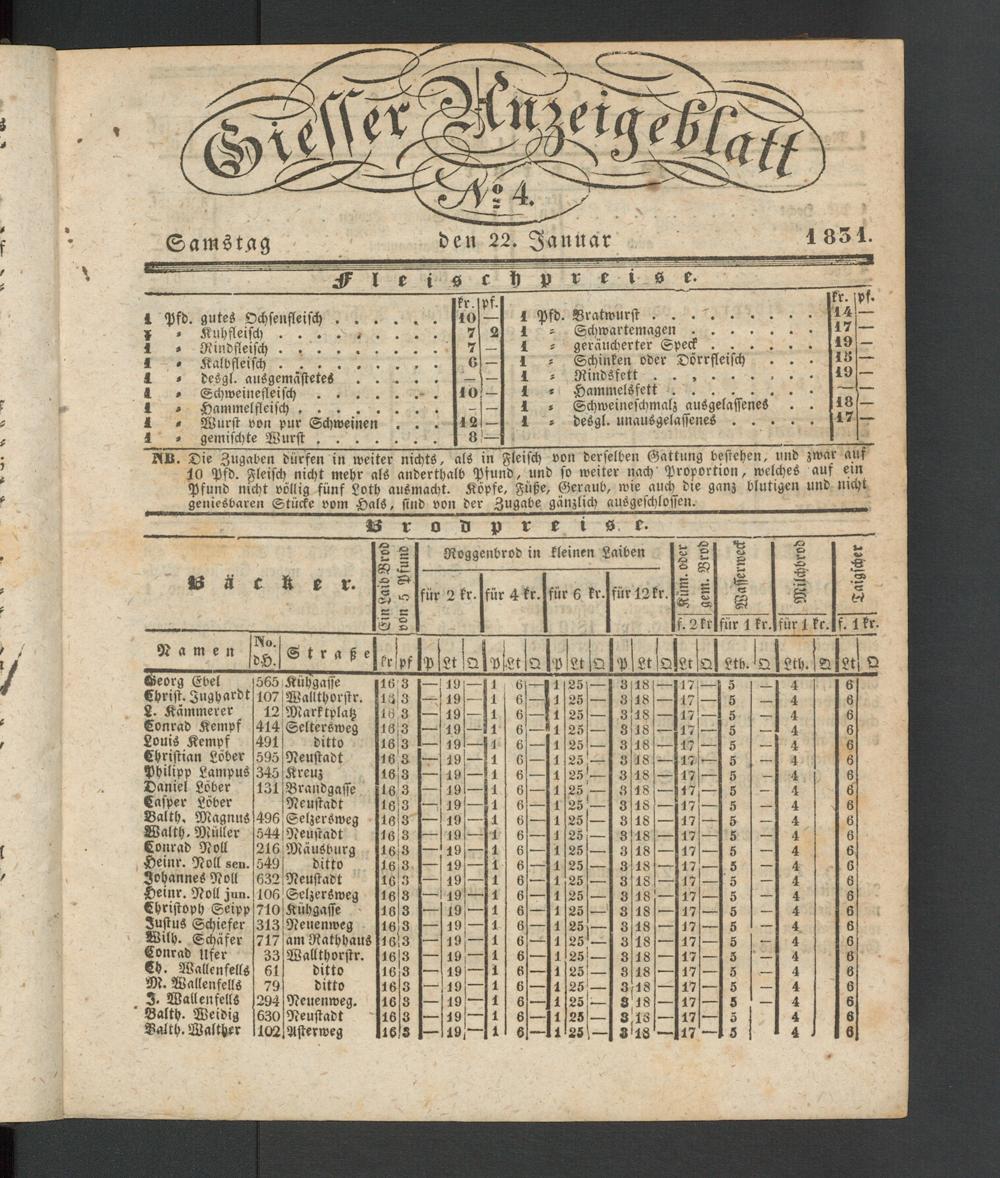 Giesser Anzeigeblatt
No 4.
Samstag den 22. Januar 1831.
Fleischpreise.
kr. pf.
1 Pfd. gutes Ochsenfleisch . . . . . . 10 —
1 " Kuhfleisch . . . . . . . . 7 2
1 " Rindfleisch . . . . . . . . 7 —
1 " Kalbfleisch . . . . . . . . 6 —
1 " desgl. ausgemästetes . . . . . — —
1 " Schweinefleisch . . . . . . 10 —
1 " Hammelfleisch . . . . . . . — —
1 " Wurst von pur Schweinen . . . 12 —
1 " gemischte Wurst . . . . . . 8 —
kr. pf.
1 Pfd. Bratwurst . . . . . . . . 14 —
1 " Schwartemagen . . . . . . . 17 —
1 " geräucherter Speck . . . . . . 19 —
1 " Schinken oder Dörrfleisch . . . . 18 —
1 " Rindsfett . . . . . . . . 19 —
1 " Hammelsfett . . . . . . . . — —
1 " Schweineschmalz ausgelassenes . . 18 —
1 " desgl. unausgelassenes . . . . . 17 —
NB. Die Zugaben dürfen in weiter nichts, als in Fleisch von derselben Gattung bestehen, und zwar auf
10 Pfd. Fleisch nicht mehr als anderthalb Pfund, und so weiter nach Proportion, welches auf ein
Pfund nicht völlig fünf Loth ausmacht. Köpfe, Füße, Geraub, wie auch die ganz blutigen und nicht
geniesbaren Stücke vom Hals, sind von der Zugabe gänzlich ausgeschlossen.
Brodpreise.
Bäcker.
Ein Laib Brod von 5 Pfund
Roggenbrod in kleinen Laiben
für 2 kr. für 4 kr. für 6 kr. für 12 kr.
Küm. oder gem. Brod f. 2 kr
Wasserweck für 1 kr.
Milchbrod für 1 kr.
Taigscher f. 1 kr.
Namen No. d.H. Straße kr pf P Lt Q P Lt Q P Lt Q P Lt Q Lt Q Lth. Q Lth. Q Lt Q
Georg Ebel 565 Kühgasse 16 3 — 19 — 1 6 — 1 25 — 3 18 — 17 — 5 — 4 6
Christ. Jughardt 107 Wallthorstr. 16 3 — 19 — 1 6 — 1 25 — 3 18 — 17 — 5 — 4 6
L. Kämmerer 12 Marktplatz 16 3 — 19 — 1 6 — 1 25 — 3 18 — 17 — 5 — 4 6
Conrad Kempf 414 Seltersweg 16 3 — 19 — 1 6 — 1 25 — 3 18 — 17 — 5 — 4 6
Louis Kempf 491 ditto 16 3 — 19 — 1 6 — 1 25 — 3 18 — 17 — 5 — 4 6
Christian Löber 595 Neustadt 16 3 — 19 — 1 6 — 1 25 — 3 18 — 17 — 5 — 4 6
Philipp Lampus 345 Kreuz 16 3 — 19 — 1 6 — 1 25 — 3 18 — 17 — 5 — 4 6
Daniel Löber 131 Brandgasse 16 3 — 19 — 1 6 — 1 25 — 3 18 — 17 — 5 — 4 6
Casper Löber Neustadt 16 3 — 19 — 1 6 — 1 25 — 3 18 — 17 — 5 — 4 6
Balth. Magnus 496 Selzersweg 16 3 — 19 — 1 6 — 1 25 — 3 18 — 17 — 5 — 4 6
Walth. Müller 544 Neustadt 16 3 — 19 — 1 6 — 1 25 — 3 18 — 17 — 5 — 4 6
Conrad Noll 216 Mäusburg 16 3 — 19 — 1 6 — 1 25 — 3 18 — 17 — 5 — 4 6
Heinr. Noll sen. 549 ditto 16 3 — 19 — 1 6 — 1 25 — 3 18 — 17 — 5 — 4 6
Johannes Noll 632 Neustadt 16 3 — 19 — 1 6 — 1 25 — 3 18 — 17 — 5 — 4 6
Heinr. Noll jun. 106 Selzersweg 16 3 — 19 — 1 6 — 1 25 — 3 18 — 17 — 5 — 4 6
Christoph Seipp 710 Kühgasse 16 3 — 19 — 1 6 — 1 25 — 3 18 — 17 — 5 — 4 6
Justus Schiefer 313 Neuenweg 16 3 — 19 — 1 6 — 1 25 — 3 18 — 17 — 5 — 4 6
Wilh. Schäfer 717 am Rathhaus 16 3 — 19 — 1 6 — 1 25 — 3 18 — 17 — 5 — 4 6
Conrad Ufer 33 Wallthorstr. 16 3 — 19 — 1 6 — 1 25 — 3 18 — 17 — 5 — 4 6
Ch. Wallenfells 61 ditto 16 3 — 19 — 1 6 — 1 25 — 3 18 — 17 — 5 — 4 6
M. Wallenfells 79 ditto 16 3 — 19 — 1 6 — 1 25 — 3 18 — 17 — 5 — 4 6
J. Wallenfells 294 Neuenweg. 16 3 — 19 — 1 6 — 1 25 — 3 18 — 17 — 5 — 4 6
Balth. Weidig 630 Neustadt 16 3 — 19 — 1 6 — 1 25 — 3 18 — 17 — 5 — 4 6
Balth. Walther 102 Asterweg 16 3 — 19 — 1 6 — 1 25 — 3 18 — 17 — 5 — 4 6